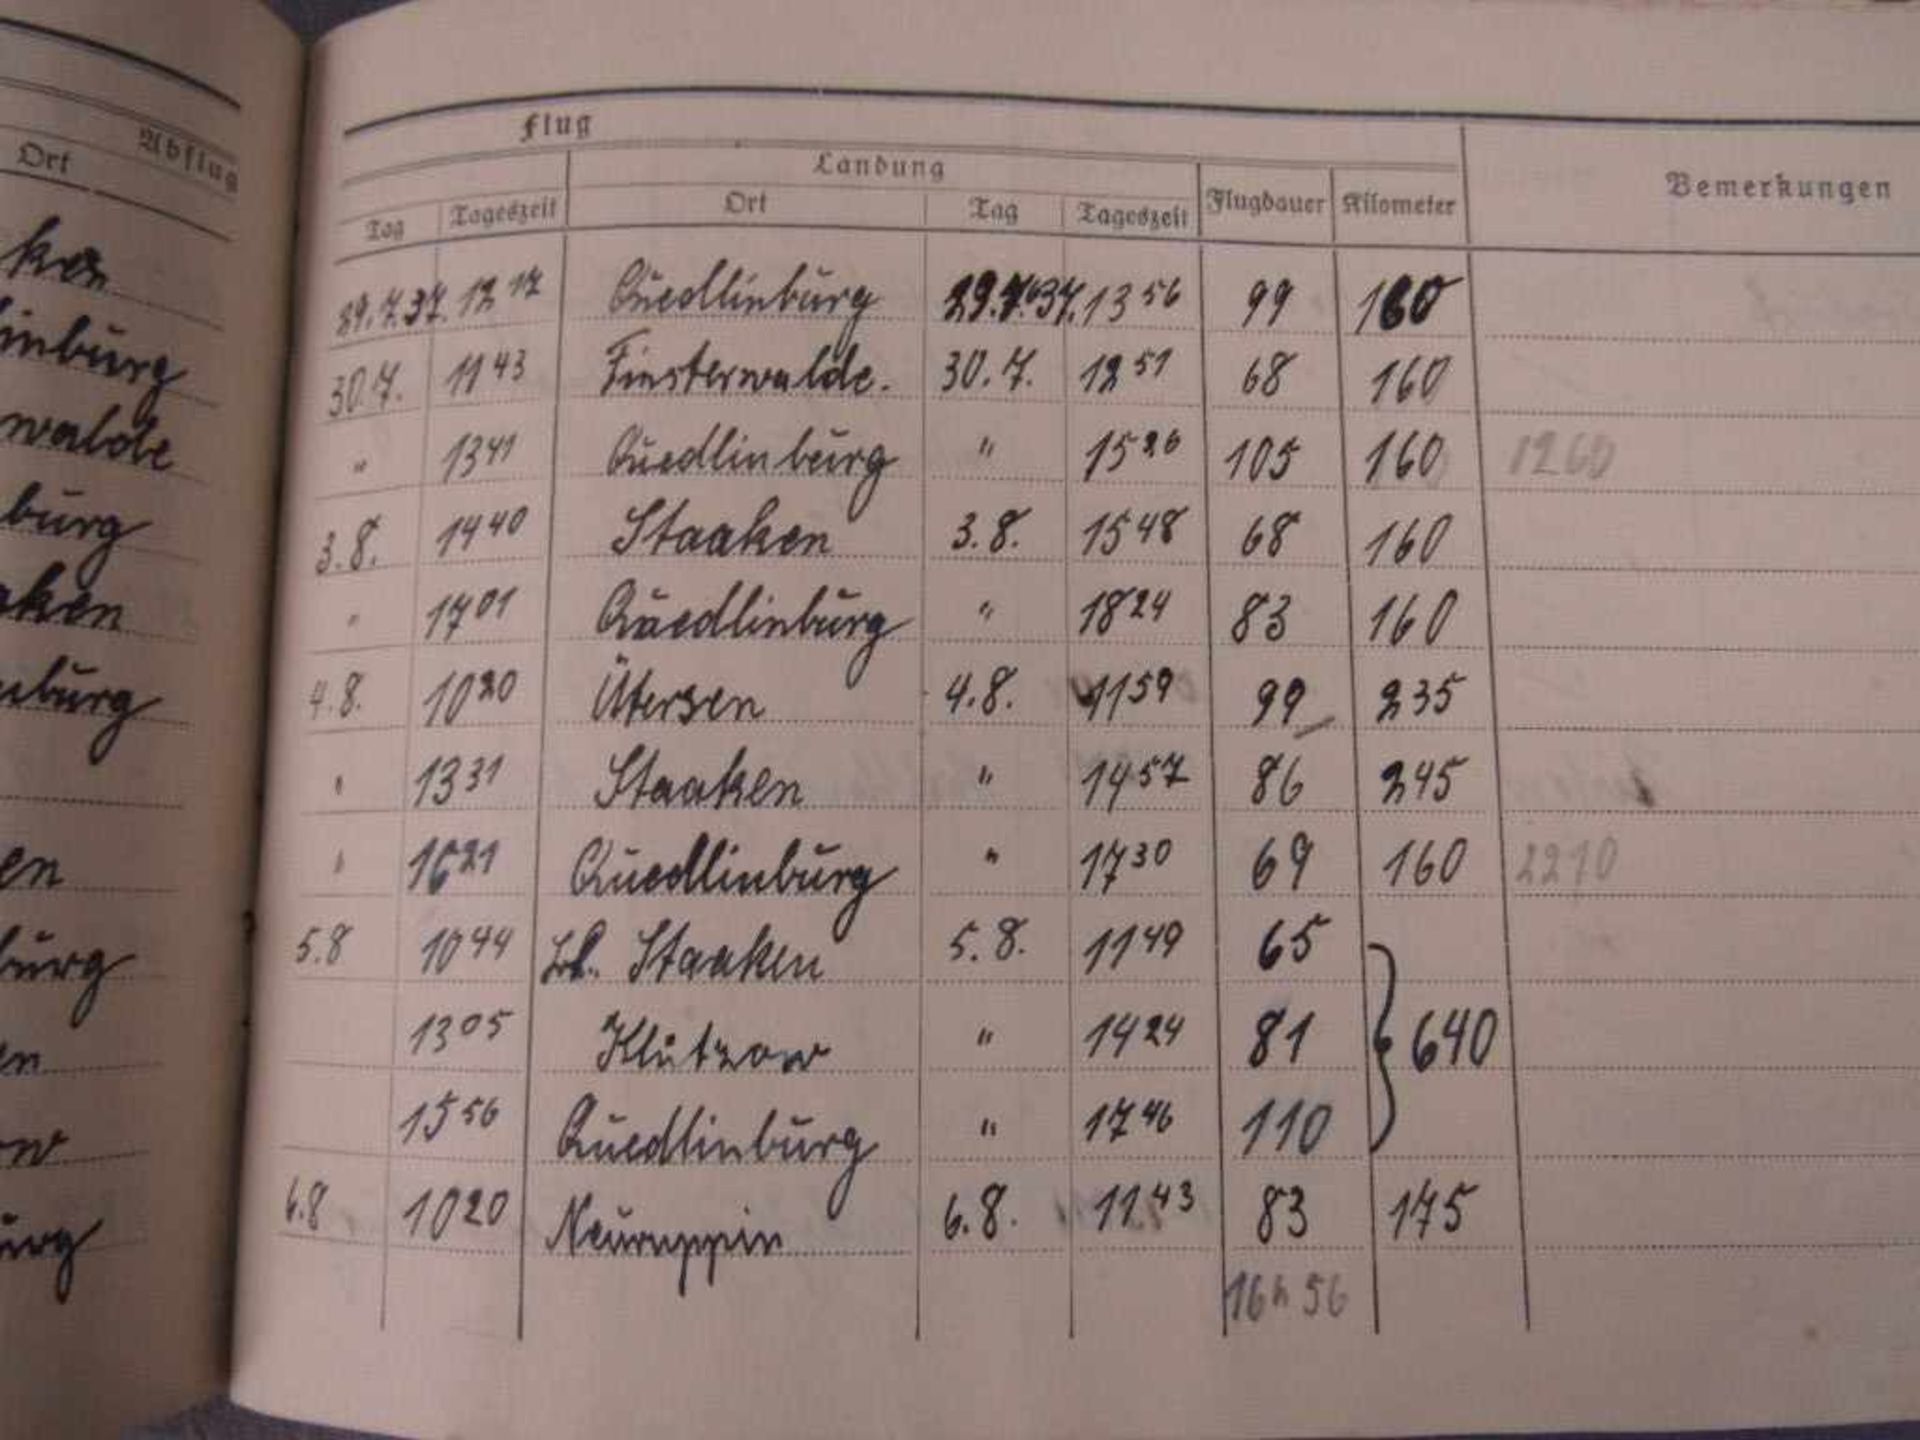 Abflug
Ort
ken
inburg
walde
burg
aken
nburg
en
burg
en
ow
urg
Flug
Landung
Tag Tageszeit Ort Tag Tageszeit Flugdauer Kilometer Bemerkungen
29.7.37. 12 17 Quedlinburg 29.7.37. 13 56 99 160
30.7. 11 43 Finsterwalde. 30.7. 12 51 68 160
" 13 41 Quedlinburg " 15 26 105 160 1260
3.8. 14 40 Staaken 3.8. 15 48 68 160
" 17 01 Quedlinburg " 18 24 83 160
4.8. 10 20 Ütersen 4.8. 11 59 99 235
" 13 31 Staaken " 14 57 86 245
" 16 21 Quedlinburg " 17 30 69 160 2210
5.8 10 44 Staaken 5.8. 11 49 65
13 05 Klützow " 14 24 81 } 640
15 56 Quedlinburg " 17 46 110
6.8 10 20 Neuruppin 6.8. 11 43 83 175
16 h 56